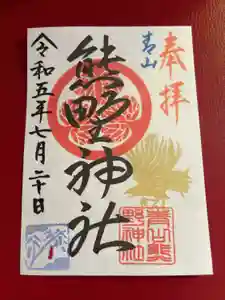 奉拝
青山
熊野神社
令和五年七月二十日
青山熊
野神社